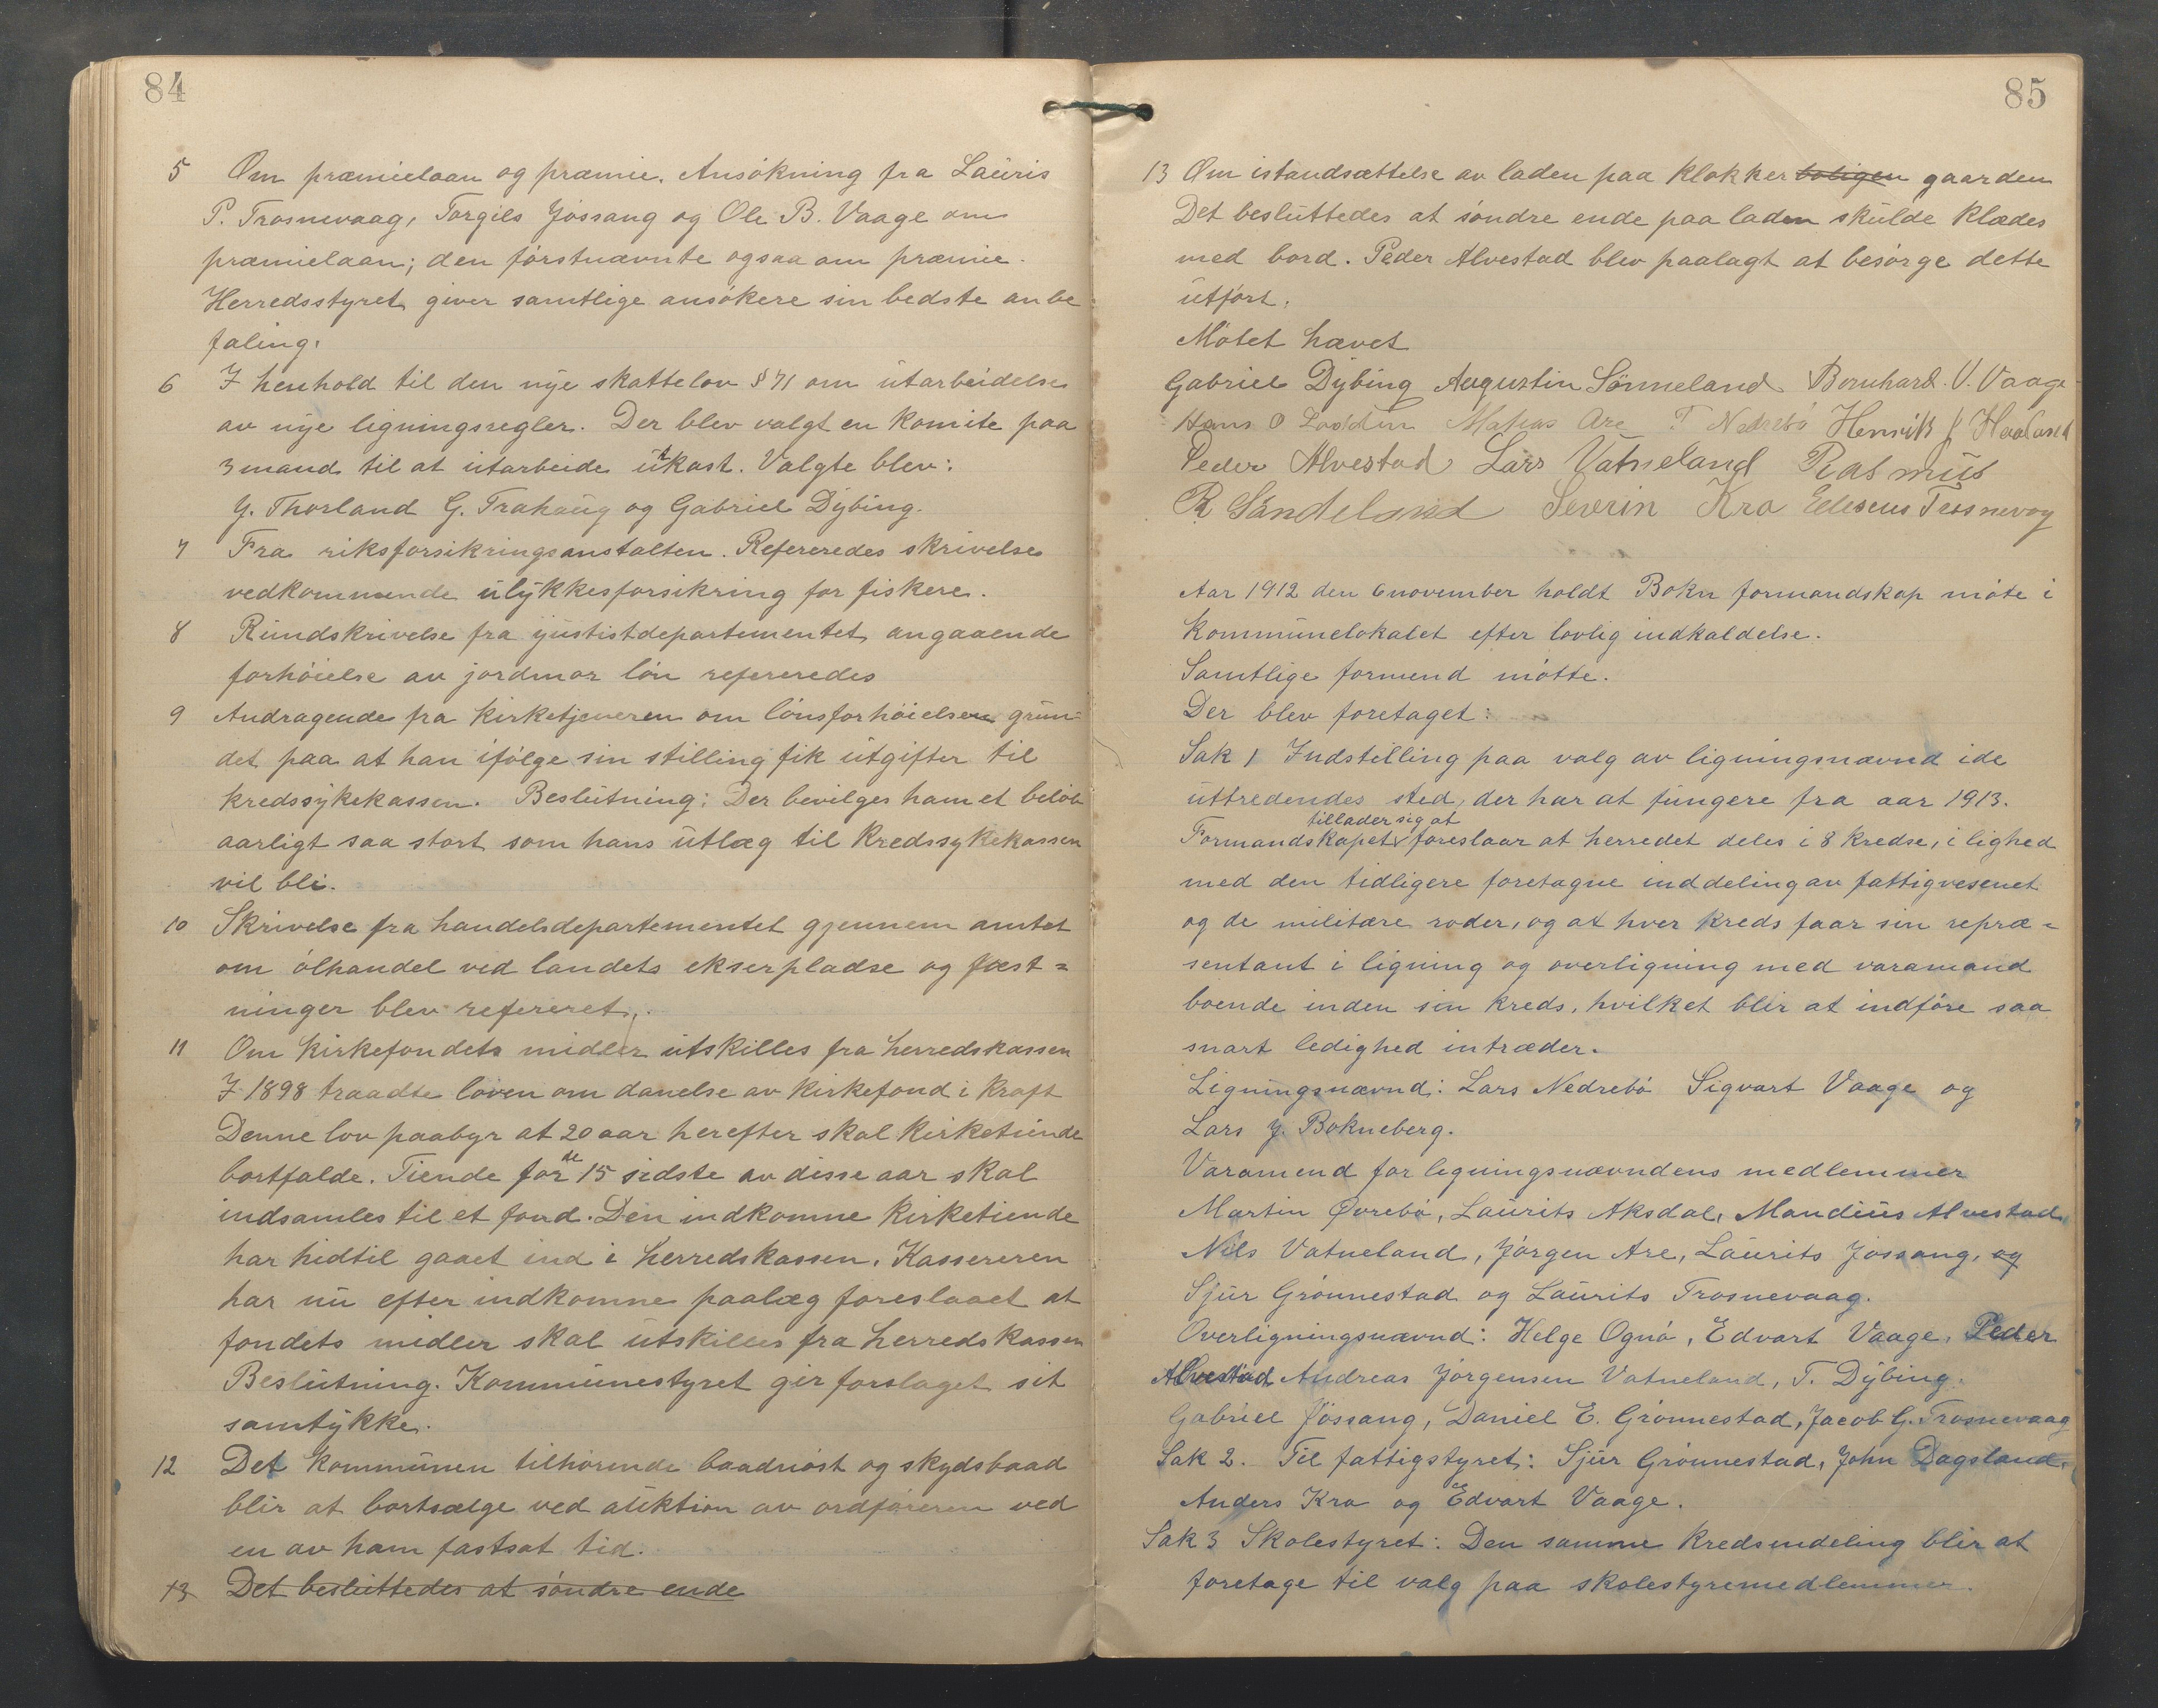 84
5 Om præmielaan og præmie. Ansökning fra Lauris
P. Trosnevaag, Torgils Jössang og Ole B. Vaage om
præmielaan; den förstnævnte ogsaa om præmie.
Herredsstyret giver samtlige ansökere sin bedste anbe
faling.
6 I henhold til den nye skattelov § 71 om utarbeidelse
av nye ligningsregler. Der blev valgt en komite paa
3 mand til at utarbeide utkast. Valgte blev:
J. Thorland G. Trahaug og Gabriel Dybing.
7 Fra riksforsikringsanstalten. Refereredes skrivelse
vedkommende ulykkesforsikring for fiskere.
8 Rundskrivelse fra justistdepartementet angaaende
forhöielse av jordmor lön refereredes
9 Andragende fra kirketjeneren om lönsforhöielsen grun-
det paa at han ifölge sin stilling fik utgifter til
kredssykekassen. Beslutning: Der bevilges ham et belöb
aarligt saa stort som hans utlæg til kredssykekassen
vil bli.
10 Skrivelse fra handelsdepartementet gjennem amtet
om ölhandel ved landets ekserpladse og fæst=
ninger blev refereret.
11 Om kirkefondets midler utskilles fra herredskassen
I 1898 traadte loven om danelse av kirkefond i kraft
Denne lov paabyr at 20 aar herefter skal kirketiende
bortfalde. Tiende for de 15 sidste av disse aar skal
indsamles til et fond. Den indkomne kirketiende
har hidtil gaaet ind i herredskassen. Kassereren
har nu efter indkomne paalæg foreslaaet at
fondets midler skal utskilles fra herredskassen
Beslutning. Kommunestyret gir forslaget sit
samtykke.
12 Det kommunen tilhörende baadnöst og skydsbaad
blir at bortsælge ved auktion av ordföreren ved
en av ham fastsat tid.
13 Det besluttedes at söndre ende
85
13 Om istandsættelse av laden paa klokker boligen gaarden
Det besluttedes at söndre ende paa laden skulde klædes
med bord. Peder Alvestad blev paalagt at besörge dette
utfört.
Mötet hævet
Gabriel Dybing Augustin Sönneland Bernhard. V. Vaage
Hans O Matias Are T Nedrebö Henrik J
Peder Alvestad Lars Vatneland Rasmus
R Sandeland Severin Kro Trosnevog
Aar 1912 den 6 november holdt Bokn formandskap möte i
kommunelokalet efter lovlig indkaldelse.
Samtlige formend mötte.
Der blev foretaget:
Sak 1 Indstilling paa valg av ligningsnævnd i de
uttredendes sted, der har at fungere fra aar 1913.
Formandskapet tillader sig at foreslaar at herredet deles i 8 kredse, i lighed
med den tidligere foretagne inddeling av fattigvesenet
og de militære roder, og at hver kreds faar sin repræ=
sentant i ligning og overligning med varamand
boende inden sin kreds, hvilket blir at indföre saa
snart ledighed intræder.
Ligningsnævnd: Lars Nedrebö Sigvart Vaage og
Lars J. Bokneberg.
Varamend for ligningsnævndens medlemmer
Martin Øvrebö, Laurits Aksdal, Mandius Alvestad,
Nils Vatneland, Jörgen Are, Laurits Jössang, og
Sjur Grönnestad og Laurits Trosnevaag.
Overligningsnævnd: Helge Ognö, Edvart Vaage, Peder
Alvestad Andreas Jörgensen Vatneland, T. Dybing.
Gabriel Jössang, Daniel E. Grönnestad, Jacob G. Trosnevaag
Sak 2. Til fattigstyret: Sjur Grönnestad, John Dagsland,
Anders Kro og Edvart Vaage.
Sak 3 Skolestyret: Den samme kredsindeling blir at
foretage til valg paa skolestyremedlemmer.